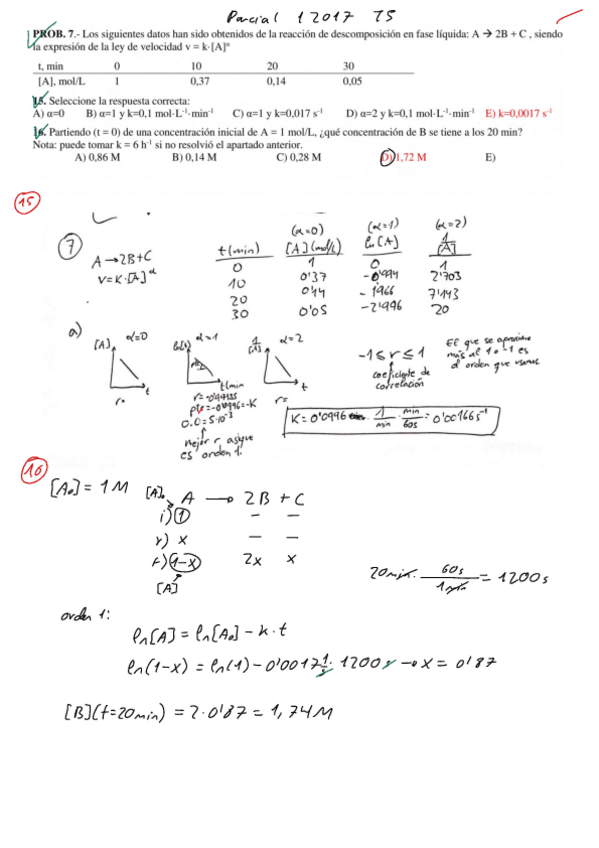 Parcial 1 2017 TS
PROB. 7.- Los siguientes datos han sido obtenidos de la reacción de descomposición en fase líquida: A → 2B + C , siendo
la expresión de la ley de velocidad v = k·[A]ⁿ
t, min 0 10 20 30
[A], mol/L 1 0,37 0,14 0,05
15. Seleccione la respuesta correcta:
A) α=0 B) α=1 y k=0,1 mol·L⁻¹·min⁻¹ C) α=1 y k=0,017 s⁻¹ D) α=2 y k=0,1 mol·L⁻¹·min⁻¹ E) k=0,0017 s⁻¹
16. Partiendo (t = 0) de una concentración inicial de A = 1 mol/L, ¿qué concentración de B se tiene a los 20 min?
Nota: puede tomar k = 6 h⁻¹ si no resolvió el apartado anterior.
A) 0,86 M B) 0,14 M C) 0,28 M D) 1,72 M E)
15
7
A→2B+C
V=K·[A]^α
(α=0) (α=1) (α=2)
t(min) [A](mol/L) ln[A] 1/[A]
0 1 0 1
10 0'37 -0'994 2'703
20 0'14 -1'966 7'143
30 0'05 -2'996 20
a)
[A] α=0 t
ln[A] α=1 t(min
1/[A] α=2 t
r= r=
=-0'0996=-K
0.0=5·10⁻³
mejor r asique
es orden 1.
-1≤r≤1
coeficiente de
correlación
El que se aproxime
más al 1 o -1 es
el orden que usamos
K=0'0996 · 1/min · min/60s = 0'00166 s⁻¹
16
[A₀] = 1M
[A]₀ A → 2B + C
i) 1 — —
r) x — —
f) 1-x 2x x
[A]
20min · 60s/1min = 1200s
orden 1:
ln[A] = ln[A₀] - k·t
ln(1-x) = ln(1) - 0'0017 1/s · 1200s → x = 0'87
[B](t=20min) = 2·0'87 = 1,74M